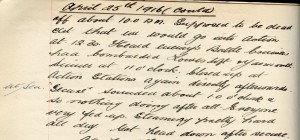 April 25th 1916 (contd
off about 1.00 A.M. Supposed to be dead
cert that we would go into action
at 12.30. Heard enemy Battle cruisers
have bombarded Lowestoft &
at 11 o'clock. Closed up at
Action Stations again directly afterwards
"Secure" sounded about 1 o'clock &
so nothing doing after all. Everyone
very fed up. Steaming pretty hard
all day but head down after secure